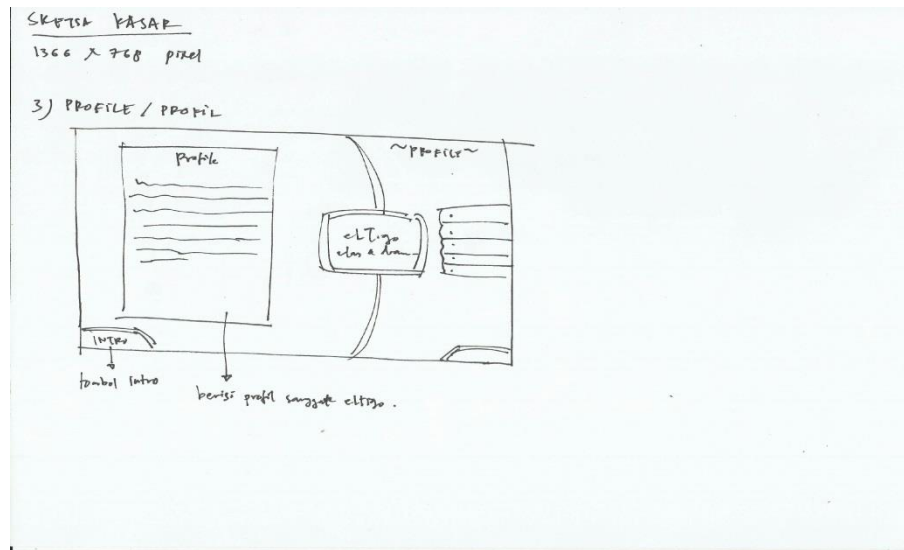 SKETSA KASAR
1366 x 768 pixel
3) PROFILE / PROFIL
Profile
~PROFILE~
elTigo
INTRO
tombol intro
berisi profil sanggar eltigo.